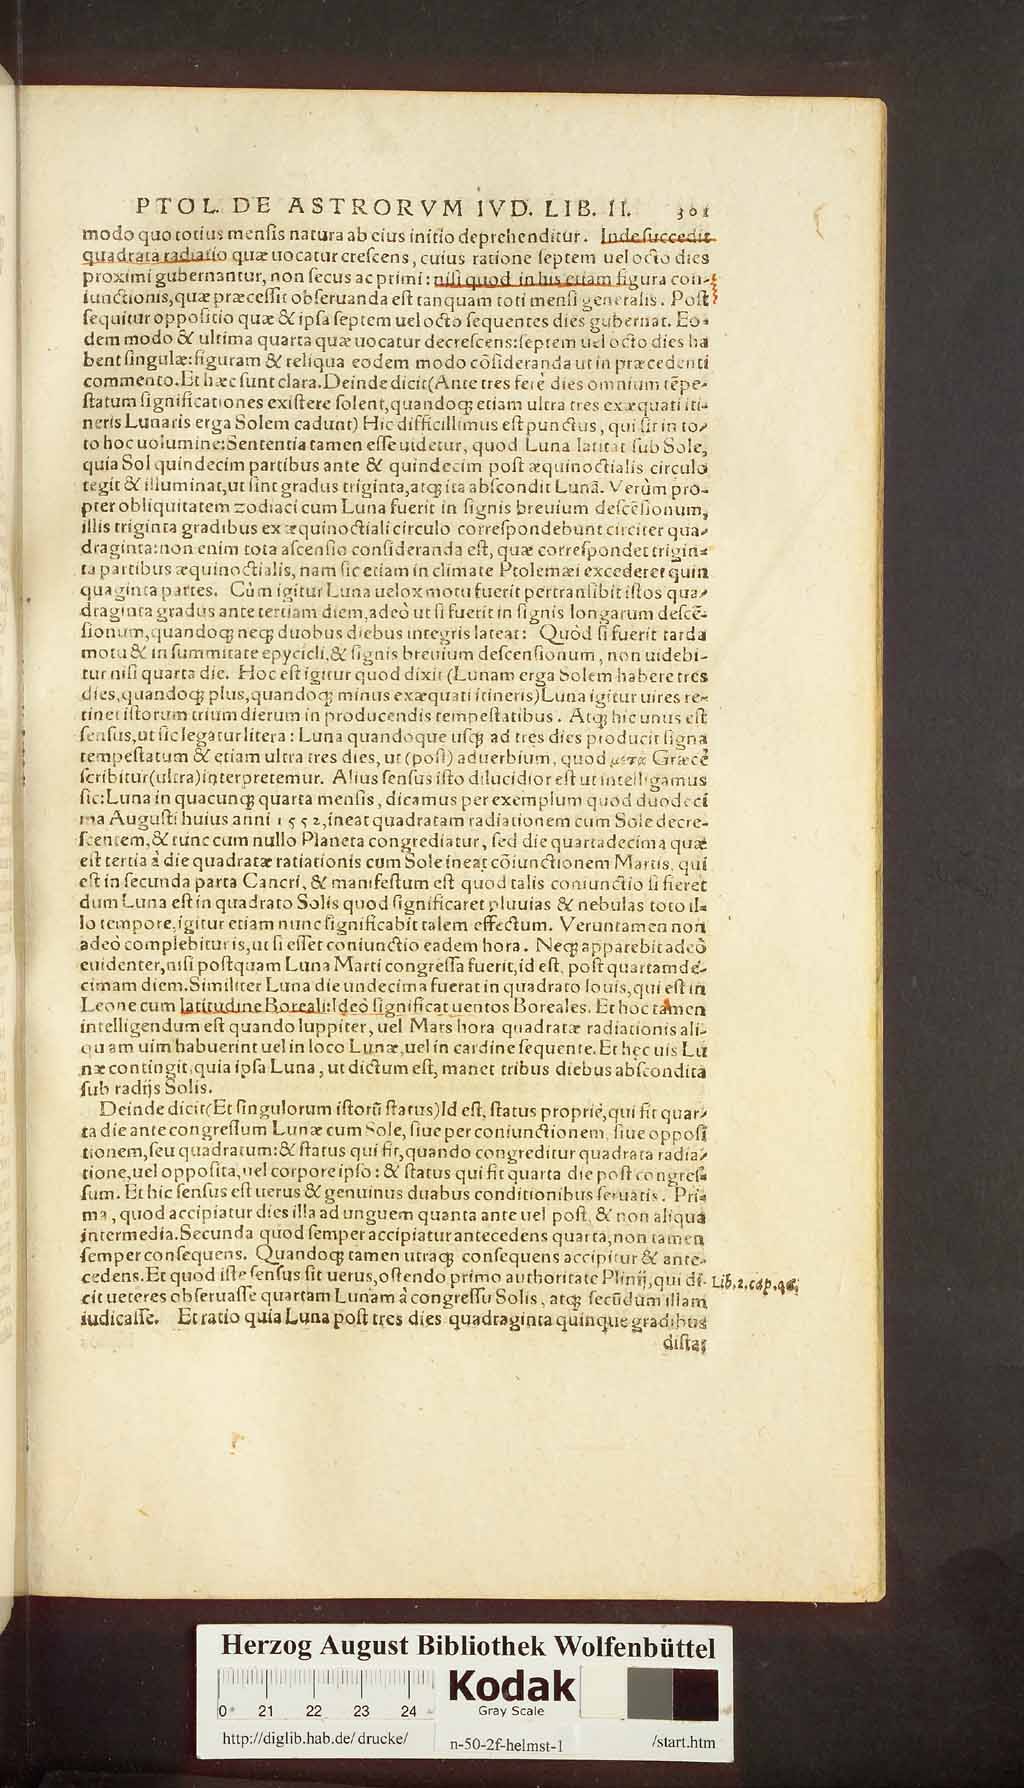 PTOL. DE ASTRORVM IVD. LIB. II. 301
modo quo totius mensis natura ab eius initio deprehenditur. Inde succedit
quadrata radiatio quæ uocatur crescens, cuius ratione septem uel octo dies
proximi gubernantur, non secus ac primi: nisi quod in his etiam figura con-
iunctionis, quæ præcessit obseruanda est tanquam toti mensi generalis. Post
sequitur oppositio quæ & ipsa septem uel octo sequentes dies gubernat. Eo-
dem modo & ultima quarta quæ uocatur decrescens: septem uel octo dies ha
bent singulæ: figuram & reliqua eodem modo cōsideranda ut in præcedenti
commento. Et hæc sunt clara. Deinde dicit (Ante tres ferè dies omnium tēpe-
statum significationes existere solent, quandoq; etiam ultra tres exæquati iti-
neris Lunaris erga Solem cadunt) Hic difficillimus est punctus, qui sit in to-
to hoc uolumine: Sententia tamen esse uidetur, quod Luna latitat sub Sole,
quia Sol quindecim partibus ante & quindecim post æquinoctialis circulo
tegit & illuminat, ut sint gradus triginta, atq; ita abscondit Lunā. Verùm pro-
pter obliquitatem zodiaci cum Luna fuerit in signis breuium descēsionum,
illis triginta gradibus ex æquinoctiali circulo correspondebunt circiter qua-
draginta: non enim tota ascensio consideranda est, quæ correspondet trigin-
ta partibus æquinoctialis, nam sic etiam in climate Ptolemæi excederet quin
quaginta partes. Cùm igitur Luna uelox motu fuerit pertransibit istos qua-
draginta gradus ante tertiam diem, adeò ut si fuerit in signis longarum descē-
sionum, quandoq; neq; duobus diebus integris lateat: Quòd si fuerit tarda
motu & in summitate epycicli, & signis breuium descensionum, non uidebi-
tur nisi quarta die. Hoc est igitur quod dixit (Lunam erga Solem habere tres
dies, quandoq; plus, quandoq; minus exæquati itineris) Luna igitur uires re-
tinet istorum trium dierum in producendis tempestatibus. Atq; hic unus est
sensus, ut sic legatur litera: Luna quandoque usq; ad tres dies producit signa
tempestatum & etiam ultra tres dies, ut (post) aduerbium, quod μετα Græcè
scribitur (ultra) interpretemur. Alius sensus isto dilucidior est ut intelligamus
sic: Luna in quacunq; quarta mensis, dicamus per exemplum quod duodeci
ma Augusti huius anni 1552, ineat quadratam radiationem cum Sole decre-
scentem, & tunc cum nullo Planeta congrediatur, sed die quartadecima quæ
est tertia à die quadratæ ratiationis cum Sole ineat cōiunctionem Martis, qui
est in secunda parta Cancri, & manifestum est quod talis coniunctio si fieret
dum Luna est in quadrato Solis quod significaret pluuias & nebulas toto il-
lo tempore, igitur etiam nunc significabit talem effectum. Veruntamen non
adeò complebitur is, ut si esset coniunctio eadem hora. Neq; apparebit adeò
euidenter, nisi postquam Luna Marti congressa fuerit, id est, post quartamde-
cimam diem. Similiter Luna die undecima fuerat in quadrato Iouis, qui est in
Leone cum latitudine Boreali: Ideò significat uentos Boreales. Et hoc tamen
intelligendum est quando Iuppiter, uel Mars hora quadratæ radiationis ali-
quam uim habuerint uel in loco Lunæ, uel in cardine sequente. Et hęc uis Lu
næ contingit, quia ipsa Luna, ut dictum est, manet tribus diebus abscondita
sub radijs Solis.
Deinde dicit (Et singulorum istorū status) Id est, status propriè, qui fit quar-
ta die ante congressum Lunæ cum Sole, siue per coniunctionem, siue opposi
tionem, seu quadratum: & status qui fit, quando congreditur quadrata radia-
tione, uel opposita, uel corpore ipso: & status qui fit quarta die post congres-
sum. Et hic sensus est uerus & genuinus duabus conditionibus seruatis. Pri-
ma, quod accipiatur dies illa ad unguem quanta ante uel post, & non aliqua
intermedia. Secunda quod semper accipiatur antecedens quarta, non tamen
semper consequens. Quandoq; tamen utraq; consequens accipitur & ante-
cedens. Et quod iste sensus sit uerus, ostendo primo authoritate Plinij, qui di- Lib. 2. cap. 48.
cit ueteres obseruasse quartam Lunam à congressu Solis, atq; secūdum illam
iudicasse. Et ratio quia Luna post tres dies quadraginta quinque gradibus
distat
Herzog August Bibliothek Wolfenbüttel
Kodak
Gray Scale
0 21 22 23 24
http://diglib.hab.de/drucke/ n-50-2f-helmst-1 /start.htm